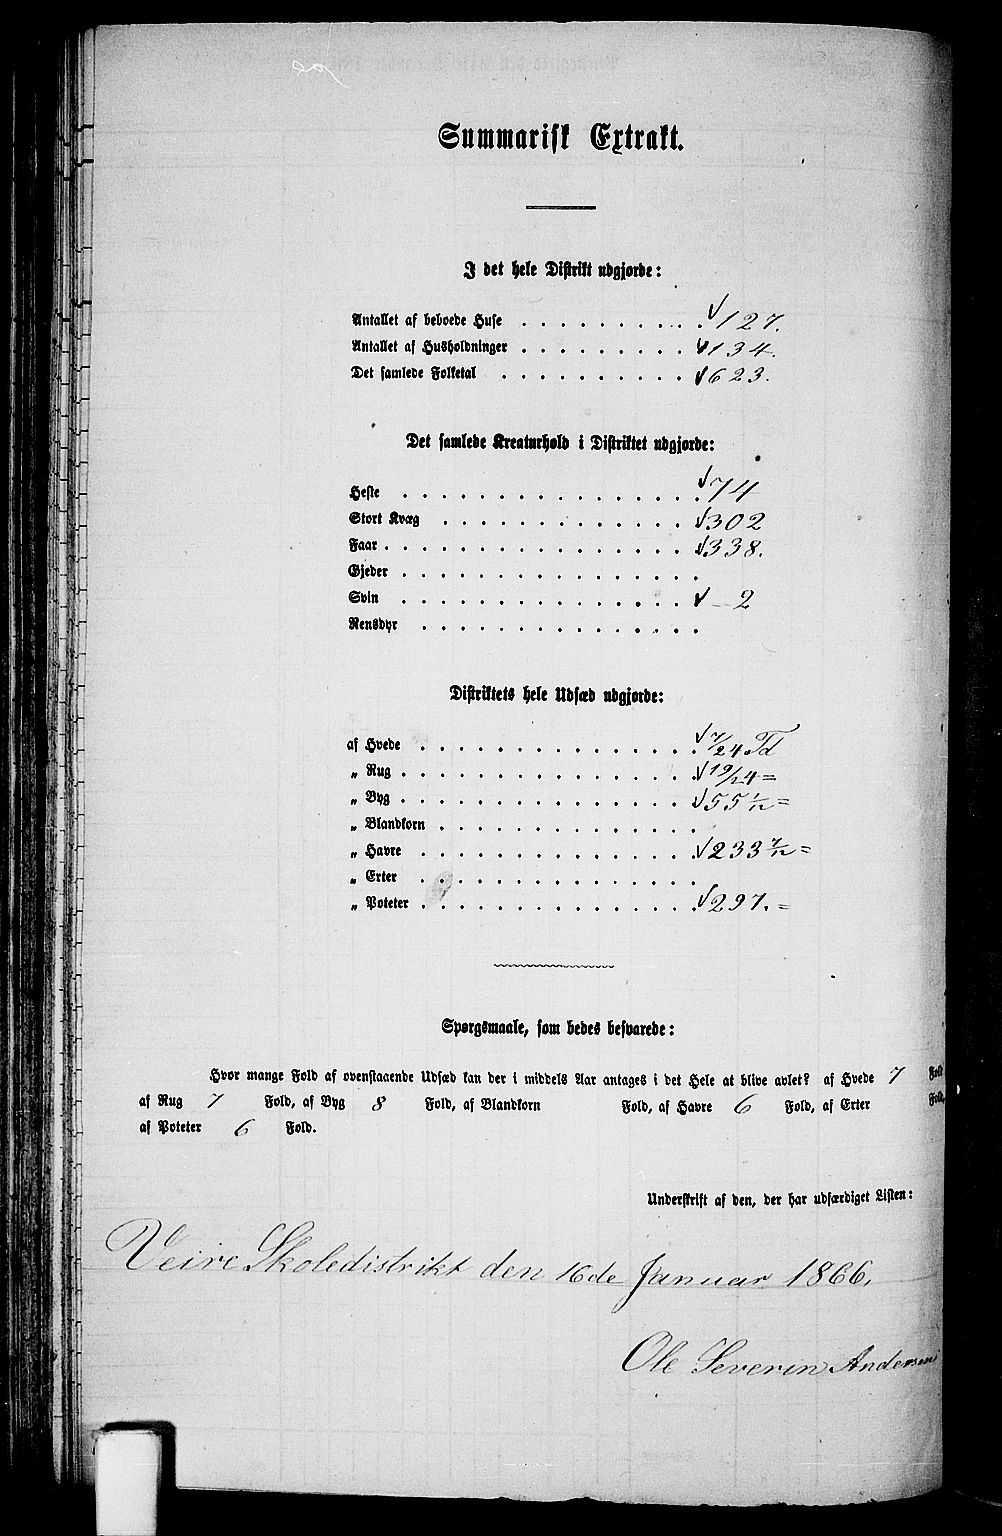 Summarisk Extrakt.
I det hele Distrikt udgjorde:
Antallet af beboede Huse . . . . . . . . . . . 127.
Antallet af Husholdninger . . . . . . . . . . 134.
Det samlede Folketal . . . . . . . . . . . 623.
Det samlede Kreaturhold i Distriktet udgjorde:
Heste . . . . . . . . . . . . . . . . 74
Stort Kvæg . . . . . . . . . . . . . . 302
Faar . . . . . . . . . . . . . . . . . 338.
Gjeder . . . . . . . . . . . . . . . .
Svin . . . . . . . . . . . . . . . . -- 2
Rensdyr . . . . . . . . . . . . . . .
Distriktets hele Udsæd udgjorde:
af Hvede . . . . . . . . . . . . . . . 7/24 Td
„ Rug . . . . . . . . . . . . . . . . 19/24 =
„ Byg . . . . . . . . . . . . . . . . 55 1/12 =
„ Blandkorn . . . . . . . . . . . . . .
„ Havre . . . . . . . . . . . . . . . 233 7/12 =
„ Erter . . . . . . . . . . . . . . .
„ Poteter . . . . . . . . . . . . . . . 297. =
Spørgsmaale, som bedes besvarede:
Hvor mange Fold af ovenstaaende Udsæd kan der i middels Aar antages i det Hele at blive avlet? af Hvede 7 Fold
af Rug 7 Fold, af Byg 8 Fold, af Blandkorn Fold, af Havre 6 Fold, af Erter Fold,
af Poteter 6 Fold.
Underskrift af den, der har udfærdiget Listen:
Veire Skoledistrikt den 16de Januar 1866.
Ole Severin Andersen